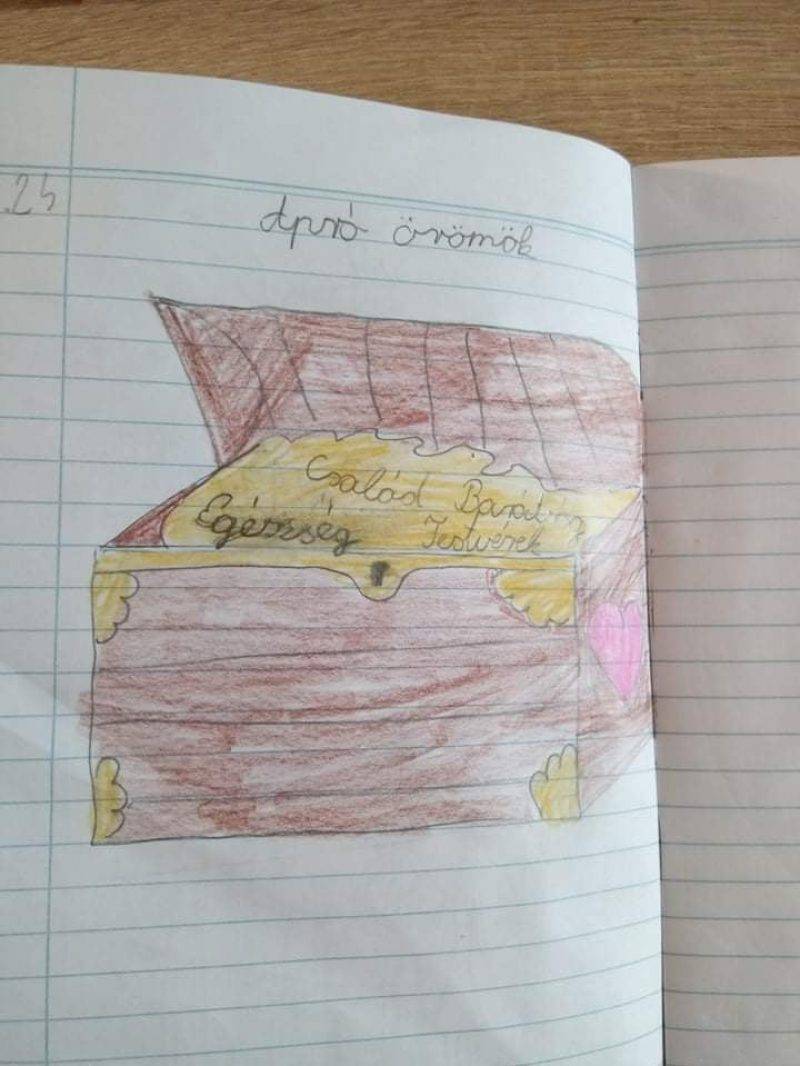 24
Apró örömök
Család Barátság
Egészség Testvérek